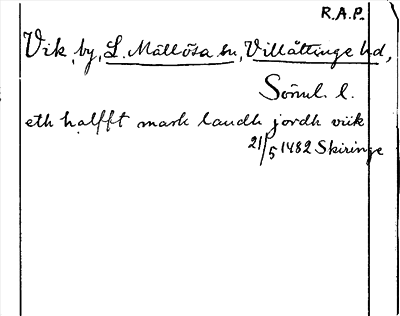 R.A.P.
Vik, by, L. Mällösa sn, Villåttinge hd,
Söml. l.
eth halfft mark landh jordh viik
21/5 1482 Skiringe